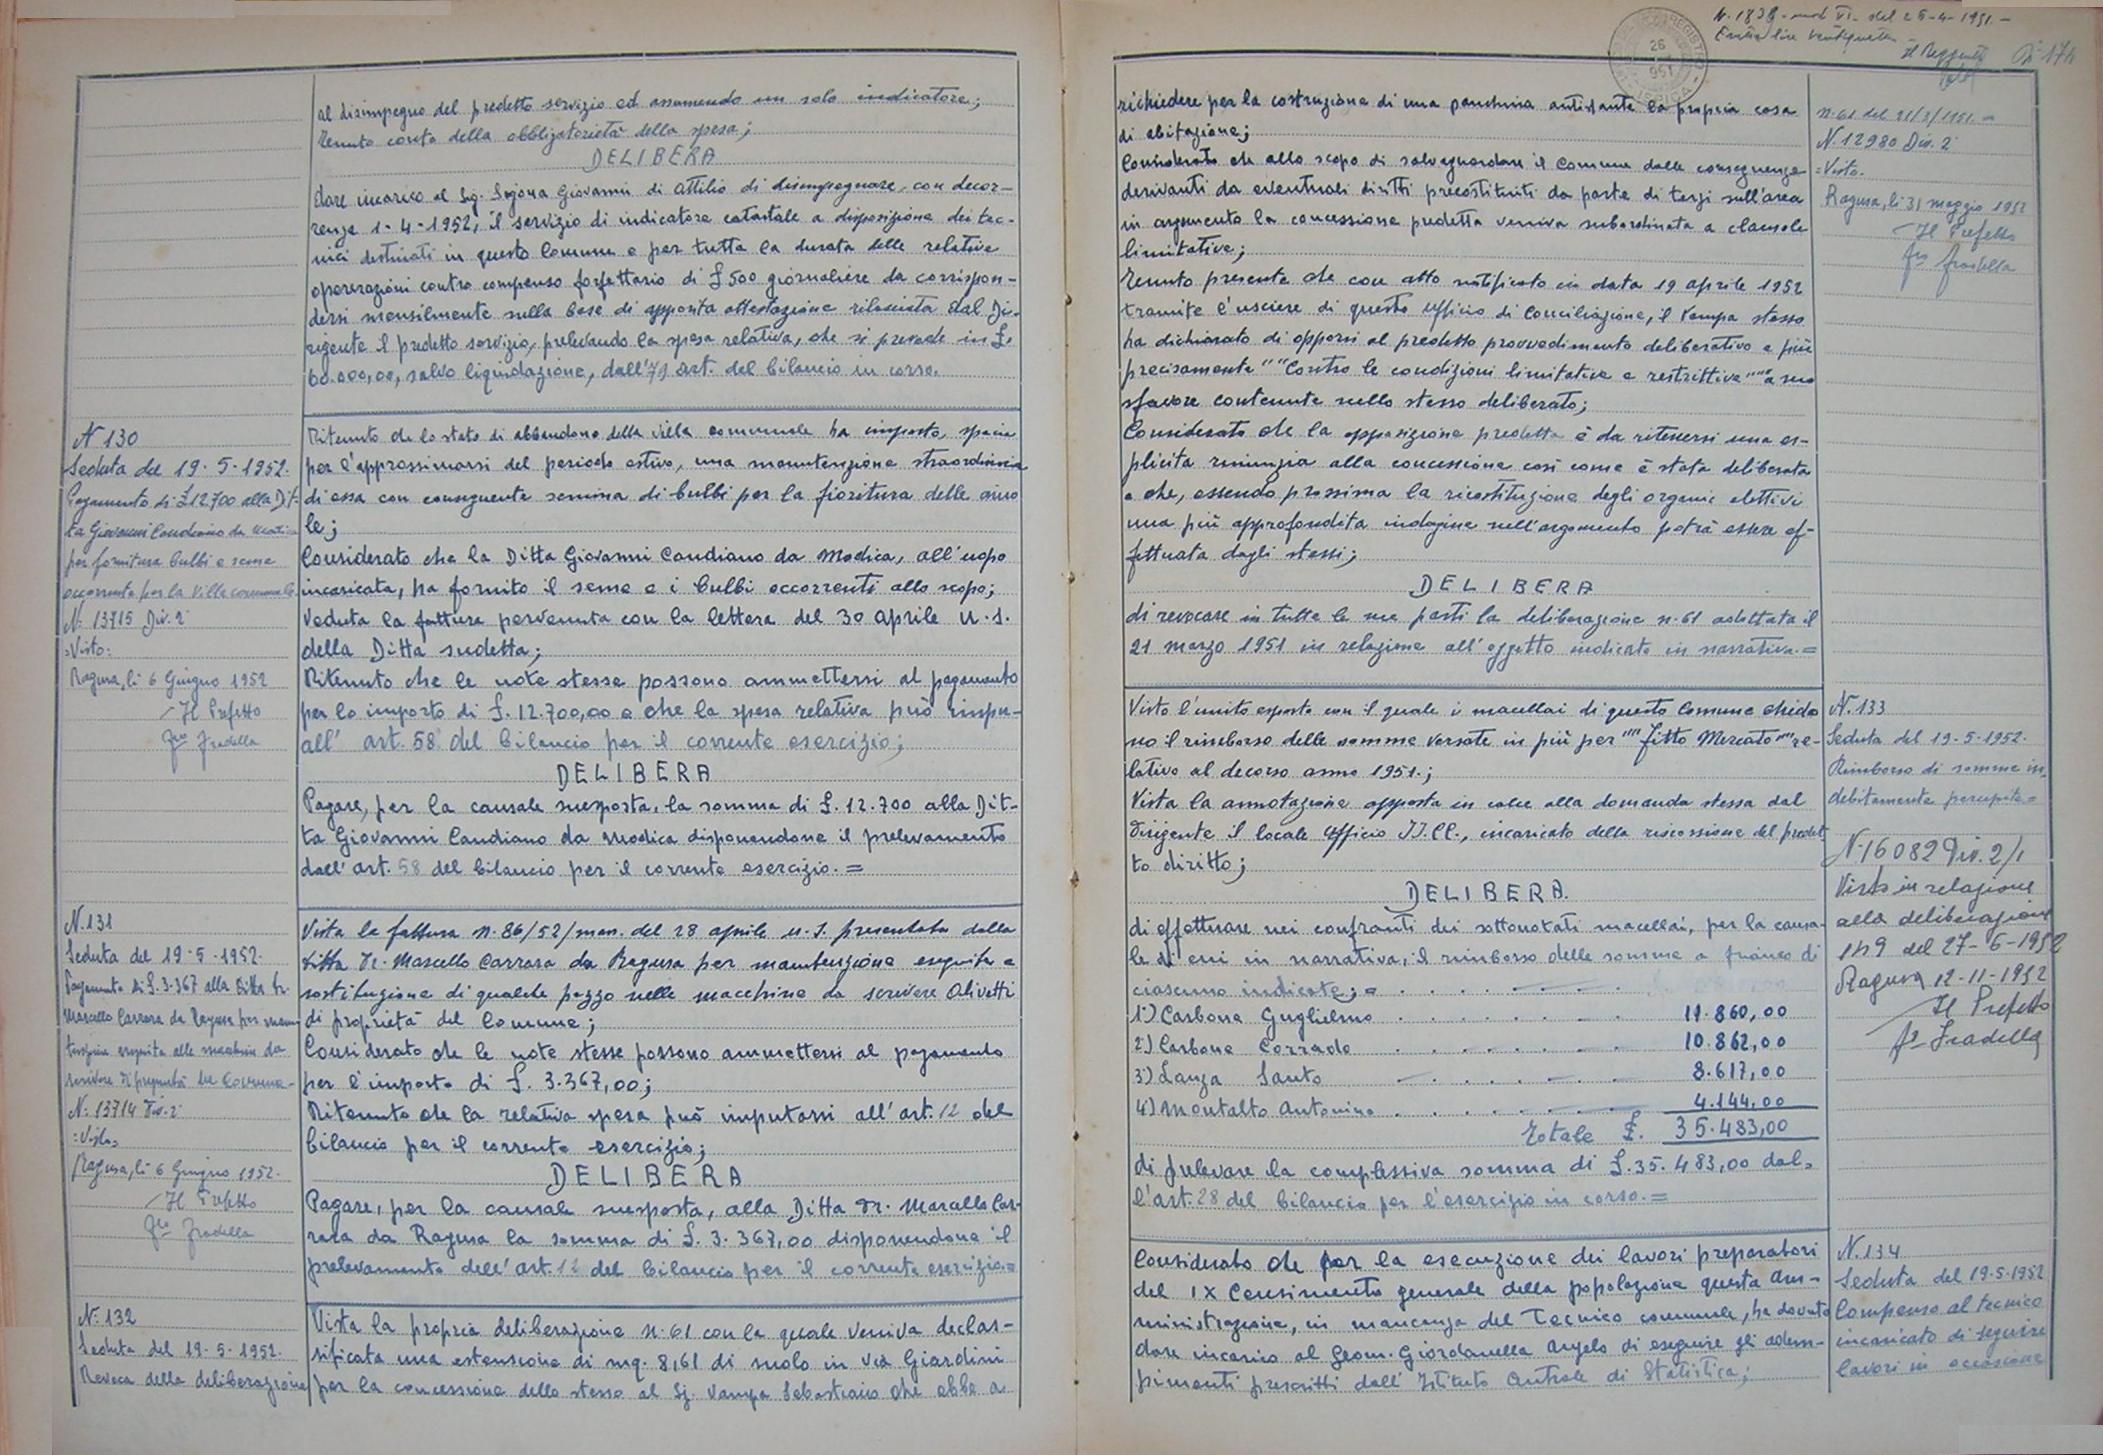 al disimpegno del predetto servizio ed assumendo un solo indicatore;
Tenuto conto della obbligatorietà della spesa;
DELIBERA
dare incarico al Sig. Giovanni di Attilio di disimpegnare, con decor-
renza 1-4-1952, il servizio di indicatore catastale a disposizione dei tec-
nici destinati in questo Comune e per tutta la durata delle relative
operazioni contro compenso forfettario di £ 500 giornaliere da corrispon-
dersi mensilmente sulla base di apposita attestazione rilasciata dal Di-
rigente il predetto servizio, prelevando la spesa relativa, che si prevede in £.
60.000,00, salvo liquidazione, dall'79 art. del bilancio in corso.
N 130
Seduta del 19-5-1952.
Pagamento di £ 12.700 alla Dit-
ta Giovanni Candiano da Modica
per fornitura bulbi e seme
occorrente per la Villa comunale
N. 13715 Div. 2ª
=Visto:
Ragusa, lì 6 Giugno 1952
Il Prefetto
Fto Fradella
Ritenuto che lo stato di abbandono della villa comunale ha imposto, specie
per l'approssimarsi del periodo estivo, una manutenzione straordinaria
di essa con conseguente semina di bulbi per la fioritura delle aiuo
le;
Considerato che la Ditta Giovanni Candiano da Modica, all'uopo
incaricata, ha fornito il seme e i bulbi occorrenti allo scopo;
Veduta la fattura pervenuta con la lettera del 30 aprile u.s.
della Ditta sudetta;
Ritenuto che le note stesse possono ammettersi al pagamento
per lo importo di £. 12.700,00 e che la spesa relativa può
all' art. 58 del bilancio per il corrente esercizio;
DELIBERA
Pagare, per la causale suesposta, la somma di £. 12.700 alla Dit-
ta Giovanni Candiano da Modica disponendone il prelevamento
dall'art. 58 del bilancio per il corrente esercizio.=
N. 131
Seduta del 19-5-1952.
Pagamento di £. 3.367 alla Ditta Dr.
Marcello Carrara da Ragusa per manu
tenzione eseguita alle macchine da
scrivere di proprietà del Comune-
N. 13714 Div. 2ª
=Visto=
Ragusa, lì 6 Giugno 1952.
Il Prefetto
Fto Fradella
Vista la fattura n. 86/52/man. del 28 aprile u.s. presentata dalla
Ditta Dr. Marcello Carrara da Ragusa per manutenzione eseguita e
sostituzione di qualche pezzo nelle macchine da scrivere Olivetti
di proprietà del Comune;
Considerato che le note stesse possono ammettersi al pagamento
per l'importo di £. 3.367,00;
Ritenuto che la relativa spesa può imputarsi all'art. 12 del
bilancio per il corrente esercizio;
DELIBERA
Pagare, per la causale suesposta, alla Ditta Dr. Marcello Car-
rara da Ragusa la somma di £. 3.367,00 disponendone il
prelevamento dell'art. 12 del bilancio per il corrente esercizio.=
N. 132
Seduta del 19-5-1952.
Revoca della deliberazione
Vista la propria deliberazione n. 61 con la quale veniva declas-
sificata una estensione di mq. 8,61 di suolo in via Giardini
per la concessione dello stesso al Sig. Vampa Sebastiano che ebbe a
N. 1838 - mod VI - del 26-4-1951.-
26
951
174
richiedere per la costruzione di una panchina antistante la propria casa
di abitazione;
Considerato che allo scopo di salvaguardare il Comune dalle conseguenze
derivanti da eventuali diritti precostituiti da parte di terzi sull'area
in argomento la concessione predetta veniva subordinata a clausole
limitative;
Tenuto presente che con atto notificato in data 19 aprile 1952
tramite l'usciere di questo Ufficio di Conciliazione, il Vampa stesso
ha dichiarato di opporsi al predetto provvedimento deliberativo e più
precisamente ""Contro le condizioni limitative e restrittive"" a suo
sfavore contenute nello stesso deliberato;
Considerato che la opposizione predetta è da ritenersi una es-
plicita rinunzia alla concessione così come è stata deliberata
e che, essendo prossima la ricostituzione degli organi elettivi
una più approfondita indagine sull'argomento potrà essere ef-
fettuata dagli stessi;
DELIBERA
di revocare in tutte le sue parti la deliberazione n. 61 adottata il
21 marzo 1951 in relazione all'oggetto indicato in narrativa.=
n. 61 del 21/3/1951.=
N. 12980 Div. 2ª
=Visto.
Ragusa, lì 31 maggio 1952
Il Prefetto
Fto Fradella
Visto l'unito esposto con il quale i macellai di questo Comune chiedo
no il rimborso delle somme versate in più per ""Fitto Mercato"" re-
lativo al decorso anno 1951.;
Vista la annotazione apposta in calce alla domanda stessa dal
Dirigente il locale Ufficio II.CC., incaricato della riscossione del predet
to diritto;
DELIBERA
di effettuare nei confronti dei sottonotati macellai, per la causa-
le di cui in narrativa, il rimborso delle somme a fianco di
ciascuno indicate;=
1°) Carbone Guglielmo 11.860,00
2°) Carbone Corrado 10.862,00
3°) Lanza Santo 8.617,00
4°) Montalto Antonino 4.144,00
Totale £. 35.483,00
di prelevare la complessiva somma di £. 35.483,00 dal-
l'art. 28 del bilancio per l'esercizio in corso.=
N. 133
Seduta del 19-5-1952.
Rimborso di somme in-
debitamente percepite=
N. 16082 Div. 2/1
Visto in relazione
alla deliberazione
149 del 27-6-1952
Ragusa 12-11-1952
Il Prefetto
Fto Fradella
Considerato che per la esecuzione dei lavori preparatori
del IX Censimento generale della popolazione questa Am-
ministrazione, in mancanza del Tecnico comunale, ha dovuto
dare incarico al Geom. Giordanella Angelo di eseguire gli adem-
pimenti prescritti dall'Istituto Centrale di Statistica;
N. 134
Seduta del 19-5-1952
Compenso al tecnico
incaricato di seguire
lavori in occasione